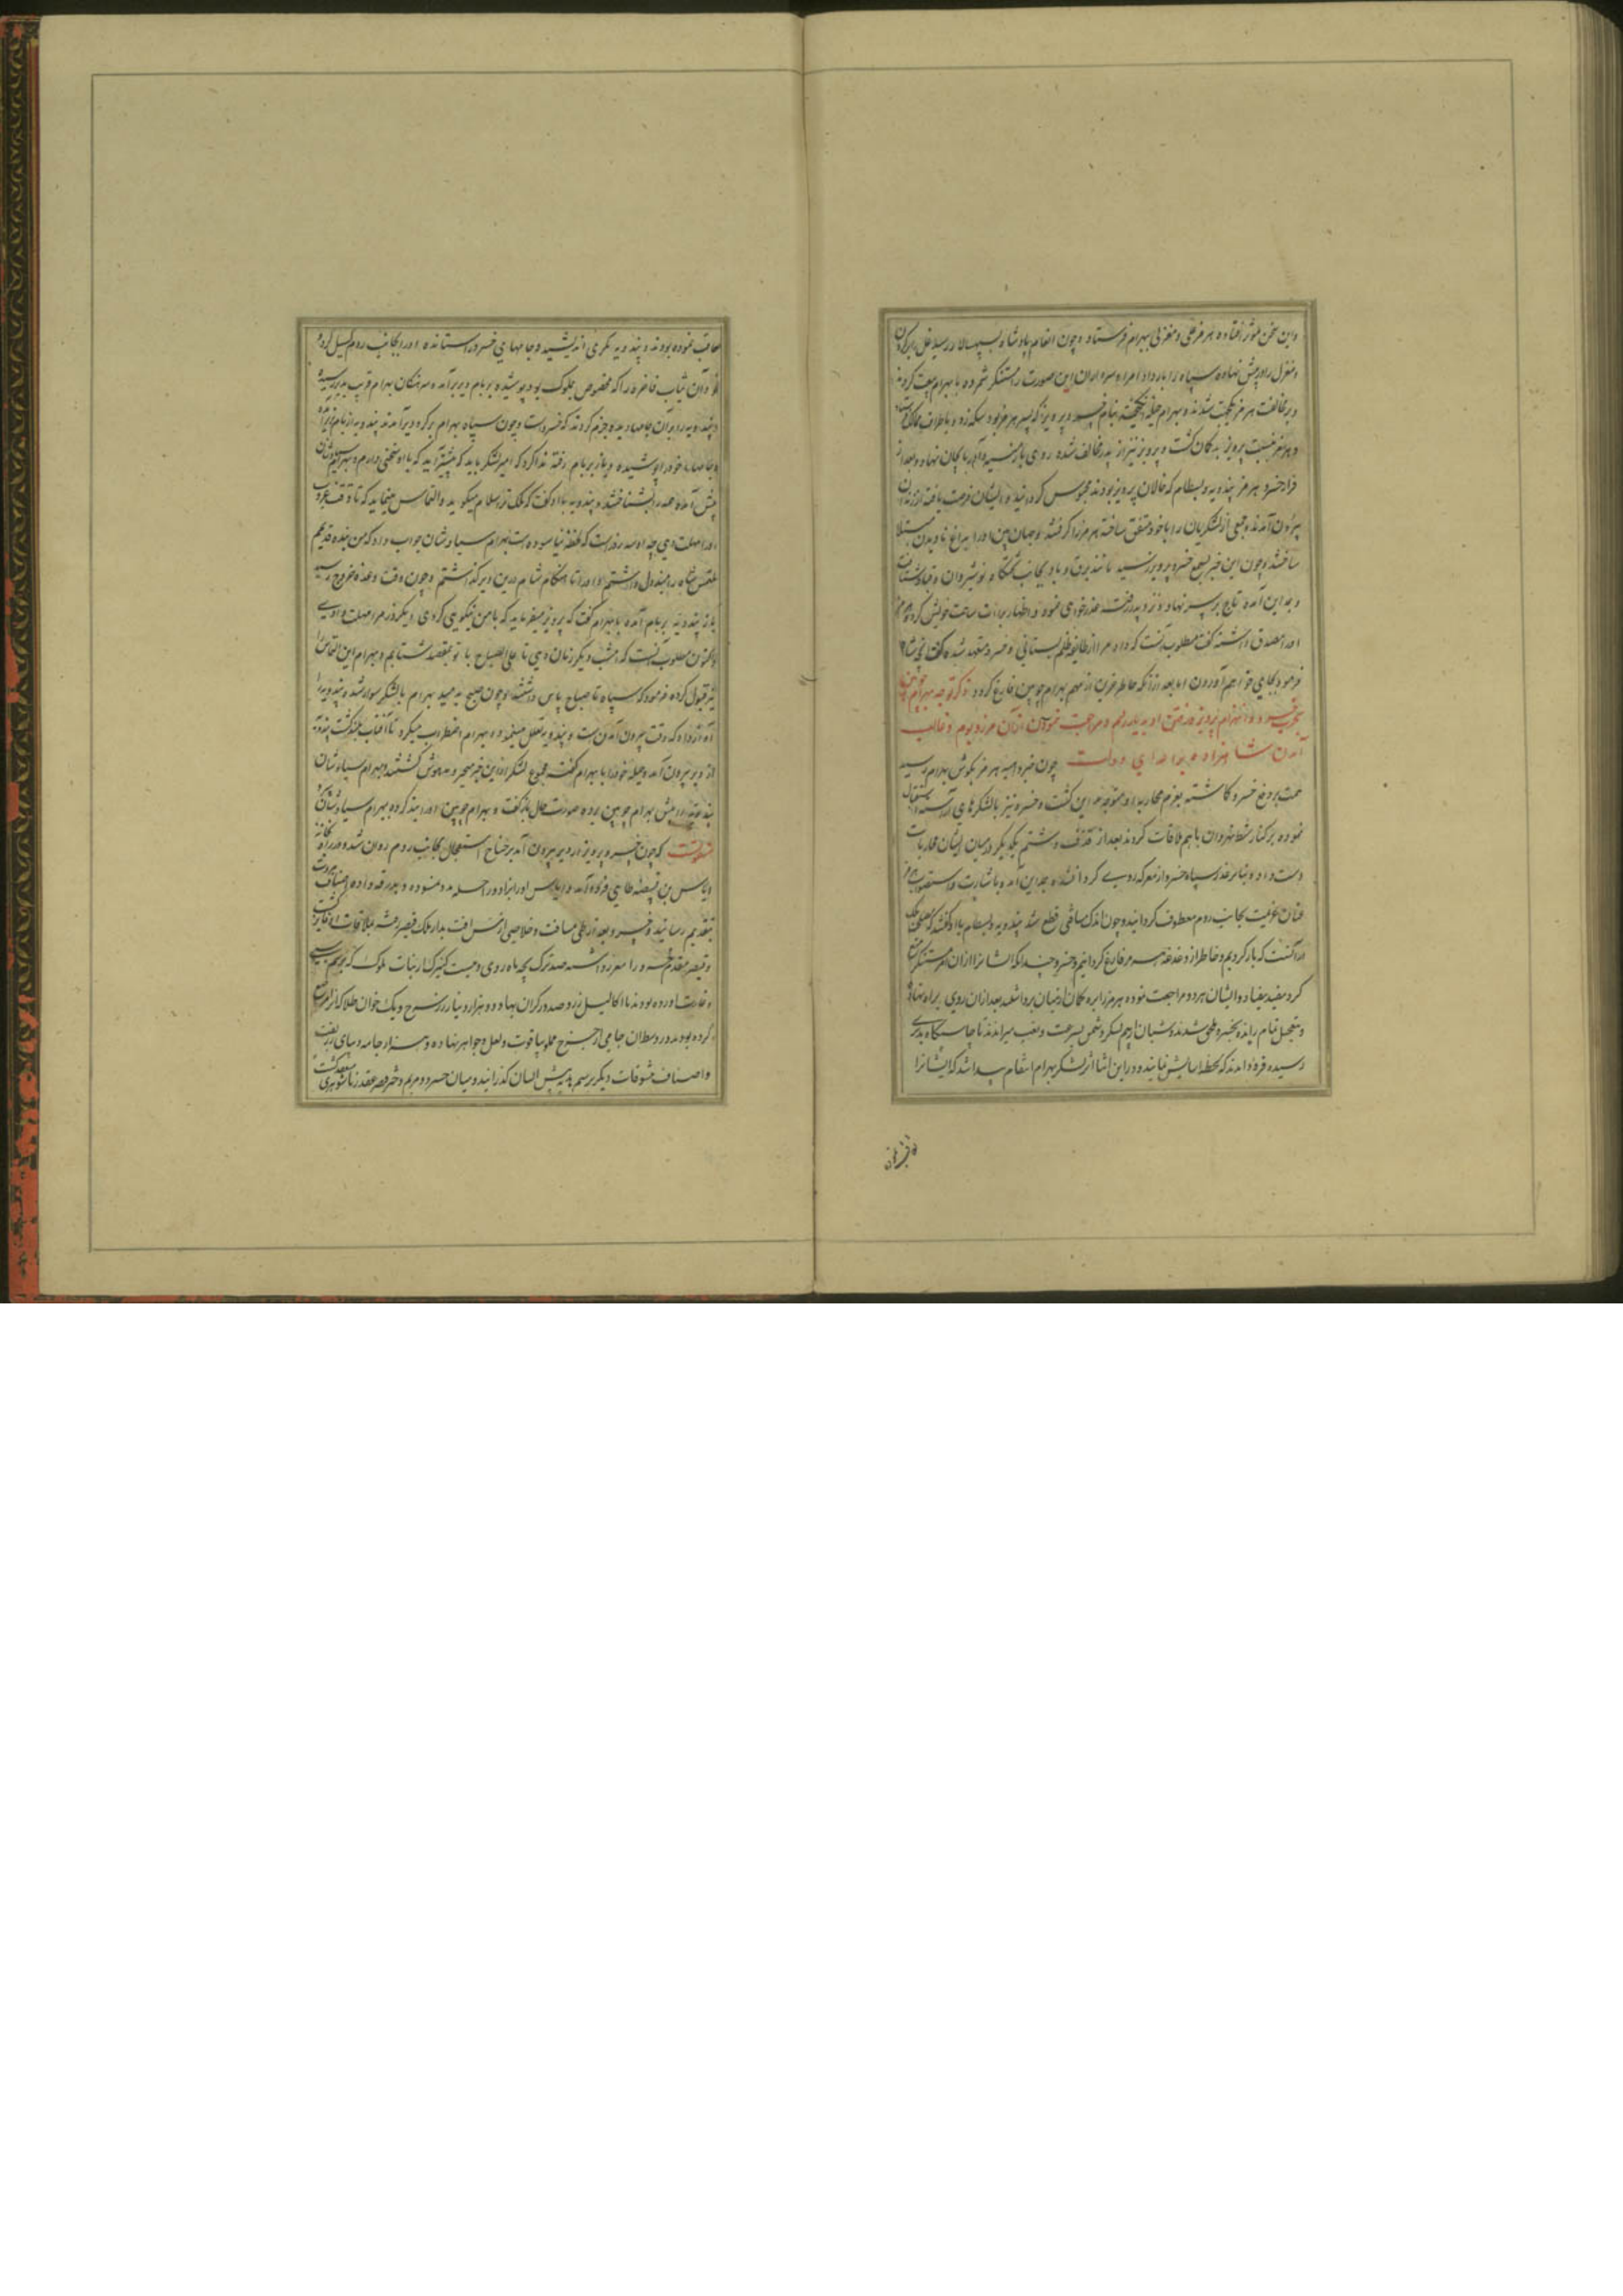 واین سخن مؤثر افتاده هرمز غلی ومغزلی ببهرام فرستاد وچون انعام پادشاه بسپهسالار رسید غل برگردن
ومغزل را در پیش نهاده سپاه را بار داد امرا وسران ایران این صورت را مستنکر شمرده با بهرام بیعت کردند
وبر مخالفت هرمز یکجهت شدند وبهرام حیله انگیخته بنام خسرو پرویز که پسر هرمز بود سکه زد وباطراف ممالک فرستاد
وهرمز نسبت پرویز بدگمان گشت وپرویز نیز از پدر مخالف شده روی بارمنیه وآذربایجان نهاد وبعد از
فرار خسرو هرمز بندویه وبسطام که خالان پرویز بودند محبوس گردانید وایشان فرصت یافته از زندان
بیرون آمدند وجمعی از لشکریان را با خود متفق ساخته هرمز را گرفتند وجهان بین او را بداغ نادیدن مبتلا
ساختند وچون این خبر بسمع خسرو پرویز رسید مانند برق وباد بجانب تختگاه نوشیروان وقباد شتافت
وبمداین آمده تاج بر سر نهاد ونزد پدر رفت عذرخواهی نموده واظهار براءت ساحت خویش کرد وهرمز
او را مصدق داشته گفت مطلوب آنست که داد مرا از طایفه ظلم بستانی وخسرو متعهد شد که آنچه شاه
فرمود بجای خواهم آوردن اما بعد از آنکه خاطر حزین از مهم بهرام چوبین فارغ گردد ذکر توجه بهرام چوبین
بحرب خسرو وانهزام پرویز ورفتن او بدیار روم ومراجعت نمودن ازان مرز وبوم وغالب
آمدن شاهزاده بر اعدای دولت چون خبر واقعه هرمز بگوش بهرام رسید
همت بر دفع خسرو گماشته بعزم محاربه او متوجه مداین گشت وخسرو نیز با لشکرهای آراسته استقبال
نموده بر کنار شط نهروان با هم ملاقات کردند بعد از قذف وشتم یکدیگر در میان ایشان محاربات
دست داد وبنابر غدر سپاه خسرو از معرکه روی گردانیده بمداین آمد وباشارت واستصواب هرمز
عنان عزیمت بجانب روم معطوف گردانید وچون اندک مسافتی قطع شد بندویه وبسطام با او گفتند که مصلحت ملک
در آنست که بازگردیم وخاطر از دغدغه هرمز فارغ گردانیم وخسرو چندانکه ایشانرا از آن امر مستنکر منع
کرد مفید نیفتاد وایشان هر دو مراجعت نموده هرمز را بزه کمان از میان برداشتند بعد ازان روی براه نهاده
وبتعجیل تمام رانده بخسرو ملحق شدند وشبان از بیم لشکر دشمن بسرعت وتعب میراندند تا چاشتگاه بدیری
رسیده فرود آمدند که لحظه آسایش نمایند ودر این اثنا اثر لشکر بهرام انتقام پیدا شد که ایشانرا
تعاقب نموده بودند وبندویه مکری اندیشید وجامهای خسرو را ستانده او را بجانب روم گسیل کرد
وآن ثیاب فاخره را که مخصوص ملوک بود پوشیده بر بام دیر برآمد وسرهنگان بهرام قریب بدیر رسیده
وبندویه را در آن جامها دیده جزم کردند که خسرو است وچون سپاه بهرام بر گرد دیر آمدند بندویه از بام فرود آمد
وجامهای خود را پوشیده وباز بر بام رفته ندا کرد که امیر لشکر باید که پیشتر آید که با او سخنی دارم وبهرام سیاوشان
پیش آمده همدیگر را بشناختند وبندویه با او گفت که ملک ترا سلام میگوید والتماس مینماید که تا وقت غروب
او را مهلت دهی چه او سه روز است که لحظه نیاسوده است بهرام سیاوشان جواب داد که من بنده قدیم
ملتمس شاه را مبذول داشتم او را تا هنگام شام درین دیر گذاشتم وچون وقت وعده خروج رسید
باز بندویه بر بام آمده با بهرام گفت که پرویز میفرماید که با من نیکویی کردی ویکروز مرا مهلت دادی
واکنون مطلوب آنست که امشب دیگر زمان دهی تا علی الصباح با تو بمقصد شتابم وبهرام این التماس را
نیز قبول کرده فرمود که سپاه تا صباح پاس داشتند وچون صبح بدمید بهرام با لشکر سوار شده بندویه را
آواز داد که وقت بیرون آمدن است وبندویه تعلل مینمود وبهرام اضطراب میکرد تا آفتاب بلند گشت بندویه
از دیر بیرون آمد وحیله خود را با بهرام گفت مجموع لشکر ازین خبر متحیر ومدهوش گشتند وبهرام سیاوشان
بندویه را پیش بهرام چوبین برده صورت حال بازگفت وبهرام چوبین او را بند کرده ببهرام سیاوشان سپرد
منقولست که چون خسرو پرویز از دیر بیرون آمد بر جناح استعجال بجانب روم روان شد ودر راه بخانه
ایاس بن قبیصه طایی فرود آمد وایاس او را بزاد وراحله مدد نموده وبدرقه داده ضیافت مروت
بتقدیم رسانید وخسرو بعد از طی مسافت وخلاصی از مخافت بدار ملک قیصر رفته بملاقات او فایز گشت
وقیصر مقدم خسرو را معزز داشته صد ترک بچه ماه روی وبیست کنیزک از بنات ملوک که برسم سبی
وغارت آورده بودند با اکالیل زر وصد در گران بها ودو هزار دینار زر سرخ ویک خوان طلا که از مرصع
کرده بودند ودر وسط آن جامی از جزع مملو بیاقوت ولعل وجواهر نهاده وهزار جامه دیبای زربفت
واصناف تنسوقات دیگر برسم پیشکش ایشان گذرانید ومیان خسرو ومریم دختر قیصر عقد زناشوهری منعقد گشت